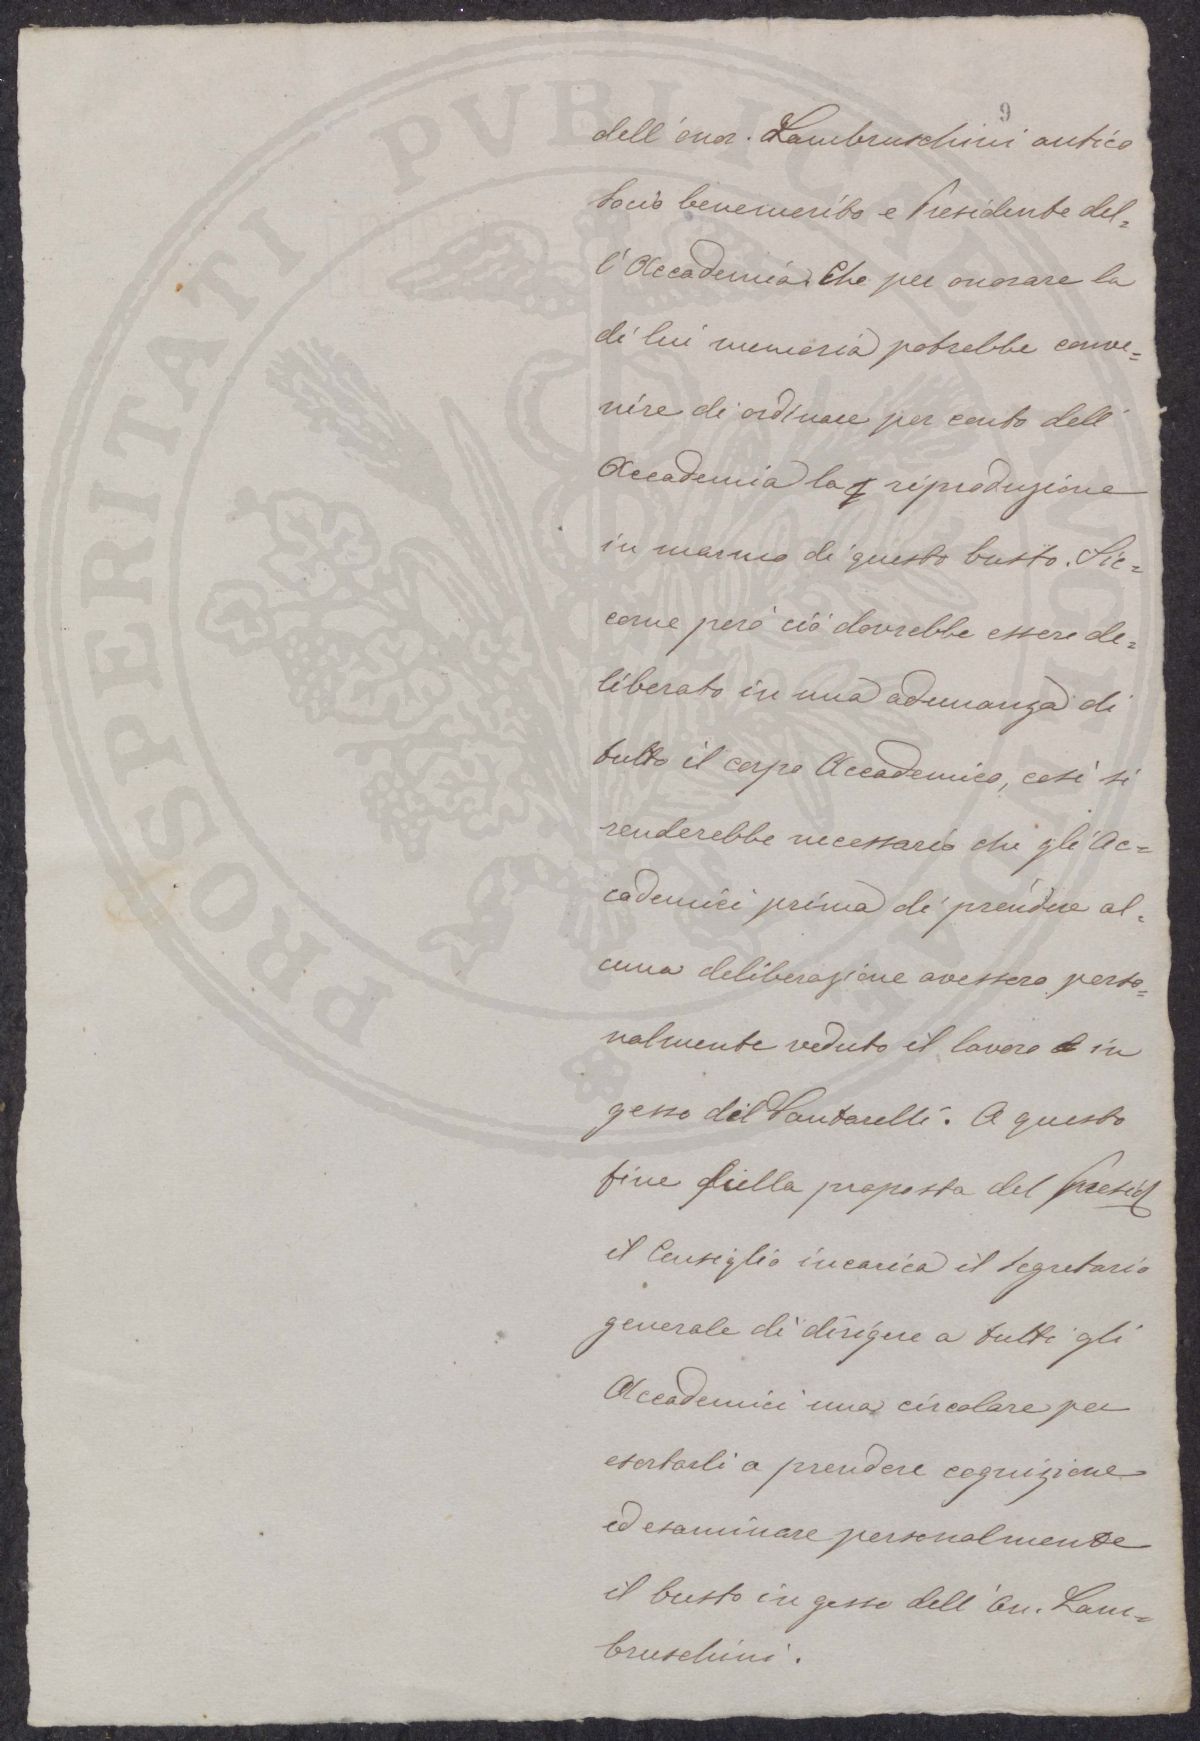 9
dell'onor. Lambruschini antico
socio benemerito e Presidente del=
l'Accademia. Che per onorare la
di lui memoria potrebbe conve=
nire di ordinare per conto dell'
Accademia la riproduzione
in marmo di questo busto. Sic=
come però ciò dovrebbe essere de=
liberato in una adunanza di
tutto il corpo Accademico, così si
renderebbe necessario che gli Ac=
cademici prima di prendere al=
cuna deliberazione avessero perso=
nalmente veduto il lavoro in
gesso del Santarelli. A questo
fine sulla proposta del Presid
il Consiglio incarica il Segretario
generale di dirigere a tutti gli
Accademici una circolare per
esortarli a prendere cognizione
ed esaminare personalmente
il busto in gesso dell'On. Lam=
bruschini.
PROSPERITATI PVBLICAE AVGENDAE